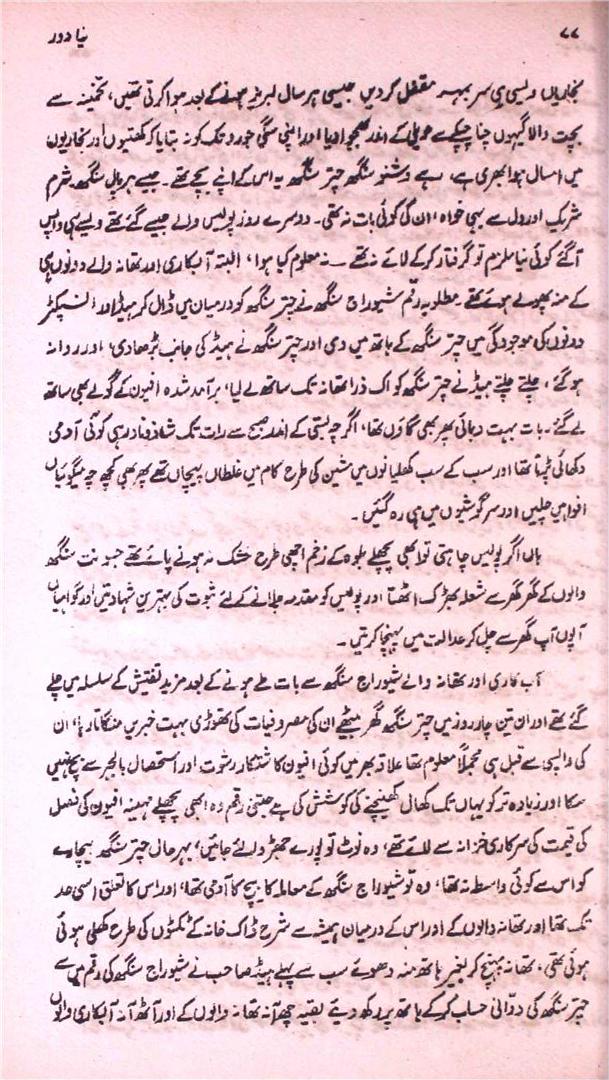 ۷۷ نیا دور
بخاریاں ویسی ہی سر بمہر مقفل کر دیں جیسی ہر سال لبریز ہونے کے بعد ہوا کرتی تھیں، تخمینہ سے
بچت والا گیہوں چنا چپکے سے حویلی کے اندر بھجوا دیا اور اپنی سگی خورد تک کو نہ بتایا کہ کھتیوں اور بخاریوں
میں امسال ہوا بھری ہے، رہے وشنو سنگھ چتر سنگھ یہ اس کے اپنے بچے تھے۔ جیسے ہر پال سنگھ، شرم
شریک اور دل سے بہی خواہ، ان کی کوئی بات نہ تھی۔ دوسرے روز پولیس والے جیسے گئے تھے ویسے ہی واپس
آ گئے کوئی نیا ملزم تو گرفتار کر کے لائے نہ تھے ۔ نہ معلوم کیا ہوا، البتہ آبکاری اور تھانہ والے دونوں ہی
کے منہ پھولے ہوئے تھے۔ مطلوبہ رقم شیوراج سنگھ نے چتر سنگھ کو درمیان میں ڈال کر ہیڈ اور انسپکٹر
دونوں کی موجودگی میں چتر سنگھ کے ہاتھ میں دی اور چتر سنگھ نے ہیڈ کی جانب بڑھا دی، اور روانہ
ہو گئے، چلتے چلتے ہیڈ نے چتر سنگھ کو اک ذرا تھانہ تک ساتھ لے لیا، برآمد شدہ افیون کے گولے بھی ساتھ
لے گئے۔ بات بہت دبائی پھر بھی گاؤں تھا، اگرچہ بستی کے اندر صبح سے رات تک شاذ و نادر ہی کوئی آدمی
دکھائی پڑتا تھا اور سب کے سب کھلیانوں میں مشین کی طرح کام میں غلطاں پیچاں تھے پھر بھی کچھ چہ میگوئیاں
افواہیں چلیں اور سرگوشیوں میں ہی رہ گئیں۔
ہاں اگر پولیس چاہتی تو ابھی پچھلے بلوہ کے زخم اچھی طرح خشک نہ ہونے پائے تھے جسونت سنگھ
والوں کے گھر گھر سے شعلہ بھڑک اٹھتا اور پولیس کو مقدمہ چلانے کے لئے ثبوت کی بہترین شہادتیں اور گواہیاں
آپوں آپ گھر سے چل کر عدالت میں پہنچا کرتیں۔
آبکاری اور تھانہ والے شیوراج سنگھ سے بات طے ہونے کے بعد مزید تفتیش کے سلسلہ میں چلے
گئے تھے اور ان تین چار روز میں چتر سنگھ گھر بیٹھے ان کی مصروفیات کی تھوڑی بہت خبریں منگاتا رہا، ان
کی واپسی سے قبل ہی مجملاً معلوم تھا علاقہ بھر میں کوئی افیون کا شتکار رشوت اور استحصال بالجبر سے بچ نہیں
سکا اور زیادہ تر کو یہاں تک کھال کھینچنے کی کوشش کی ہے جتنی رقم وہ ابھی پچھلے مہینہ افیون کی فصل
کی قیمت کی سرکاری خزانہ سے لائے تھے، وہ نوٹ تو پورے جھڑوا لئے جائیں، بہرحال چتر سنگھ بیچارے
کو اس سے کوئی واسطہ نہ تھا، وہ تو شیوراج سنگھ کے معاملہ کا بیچ کا آدمی تھا، اور اس کا تعلق اسی حد
تک تھا اور تھانہ والوں کے اور اس کے درمیان ہمیشہ سے شرح ڈاک خانہ کے ٹکٹوں کی طرح کھلی ہوئی
ہوئی تھی، تھانہ پہنچ کر بغیر ہاتھ منہ دھوئے سب سے پہلے ہیڈ صاحب نے شیوراج سنگھ کی رقم میں سے
چتر سنگھ کی دوانی حساب کر کے ہاتھ پر رکھ دیتے بقیہ چھ آنہ تھانہ والوں کے اور آٹھ آنہ آبکاری والوں